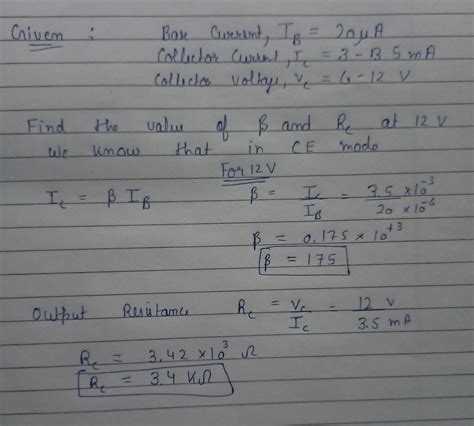 Given : Base Current, I_B = 20μA
Collector Current, I_c = 3 - 3.5 mA
Collector Voltage, V_c = 6 - 12 V
Find the value of β and R_c at 12 V
we know that in CE mode
For 12 V
I_c = β I_B β = I_c / I_B = 3.5 × 10^-3 / 20 × 10^-6
β = 0.175 × 10^+3
β = 175
Output Resistance R_c = V_c / I_c = 12 V / 3.5 mA
R_c = 3.42 × 10^3 Ω
R_c = 3.4 KΩ